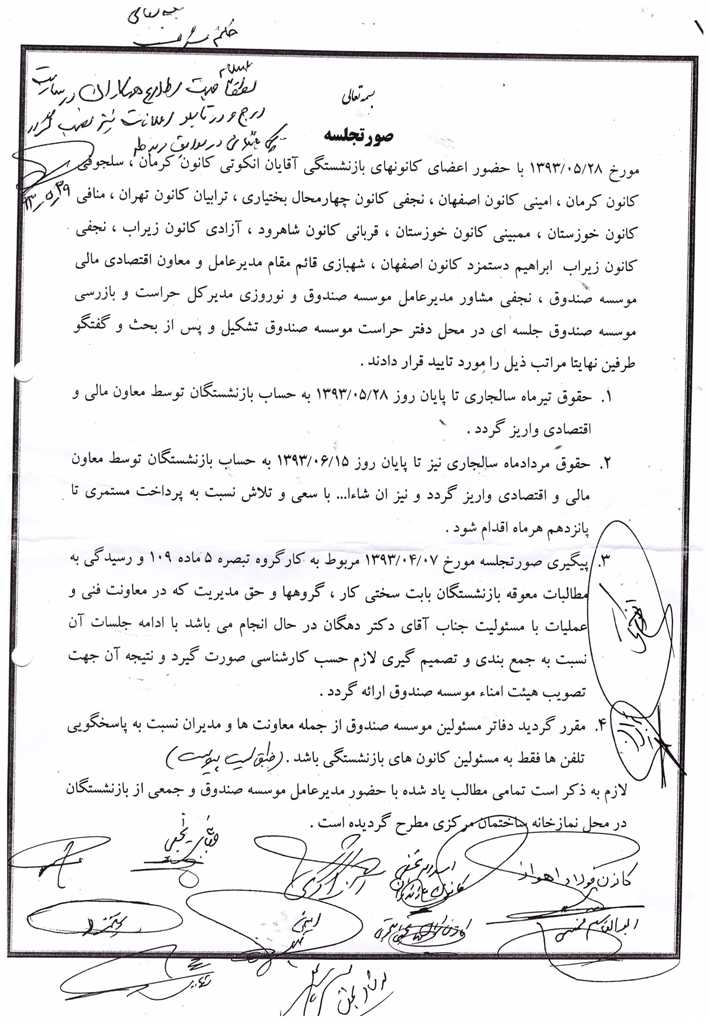 بسمه تعالی
۱
بسمه تعالی
صورتجلسه
مورخ ۱۳۹۳/۰۵/۲۸ با حضور اعضای کانونهای بازنشستگی آقایان انکوتی کانون کرمان ، سلجوقی
کانون کرمان ، امینی کانون اصفهان ، نجفی کانون چهارمحال بختیاری ، ترابیان کانون تهران ، منافی
کانون خوزستان ، ممبینی کانون خوزستان ، قربانی کانون شاهرود ، آزادی کانون زیراب ، نجفی
کانون زیراب ابراهیم دستمزد کانون اصفهان ، شهبازی قائم مقام مدیرعامل و معاون اقتصادی مالی
موسسه صندوق ، نجفی مشاور مدیرعامل موسسه صندوق و نوروزی مدیرکل حراست و بازرسی
موسسه صندوق جلسه ای در محل دفتر حراست موسسه صندوق تشکیل و پس از بحث و گفتگو
طرفین نهایتا مراتب ذیل را مورد تایید قرار دادند .
۱. حقوق تیرماه سالجاری تا پایان روز ۱۳۹۳/۰۵/۲۸ به حساب بازنشستگان توسط معاون مالی و
اقتصادی واریز گردد .
۲. حقوق مردادماه سالجاری نیز تا پایان روز ۱۳۹۳/۰۶/۱۵ به حساب بازنشستگان توسط معاون
مالی و اقتصادی واریز گردد و نیز ان شاءا... با سعی و تلاش نسبت به پرداخت مستمری تا
پانزدهم هرماه اقدام شود .
۳. پیگیری صورتجلسه مورخ ۱۳۹۳/۰۴/۰۷ مربوط به کارگروه تبصره ۵ ماده ۱۰۹ و رسیدگی به
مطالبات معوقه بازنشستگان بابت سختی کار ، گروهها و حق مدیریت که در معاونت فنی و
عملیات با مسئولیت جناب آقای دکتر دهگان در حال انجام می باشد با ادامه جلسات آن
نسبت به جمع بندی و تصمیم گیری لازم حسب کارشناسی صورت گیرد و نتیجه آن جهت
تصویب هیئت امناء موسسه صندوق ارائه گردد .
۴. مقرر گردید دفاتر مسئولین موسسه صندوق از جمله معاونت ها و مدیران نسبت به پاسخگویی
تلفن ها فقط به مسئولین کانون های بازنشستگی باشد . (طبق لیست پیوست)
لازم به ذکر است تمامی مطالب یاد شده با حضور مدیرعامل موسسه صندوق و جمعی از بازنشستگان
در محل نمازخانه ساختمان مرکزی مطرح گردیده است .
کانون فولاد اهواز
ابوالقاسم